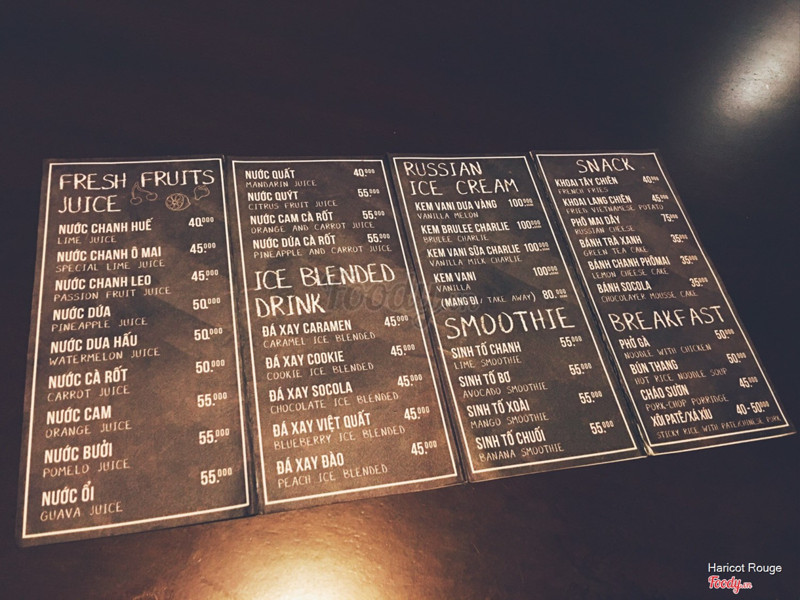 FRESH FRUITS
JUICE
NƯỚC CHANH HUẾ 40.000
LIME JUICE
NƯỚC CHANH Ô MAI 45.000
SPECIAL LIME JUICE
NƯỚC CHANH LEO 45.000
PASSION FRUIT JUICE
NƯỚC DỨA 50.000
PINEAPPLE JUICE
NƯỚC DƯA HẤU 50.000
WATERMELON JUICE
NƯỚC CÀ RỐT 50.000
CARROT JUICE
NƯỚC CAM 55.000
ORANGE JUICE
NƯỚC BƯỞI 55.000
POMELO JUICE
NƯỚC ỔI 55.000
GUAVA JUICE
NƯỚC QUẤT 40.000
MANDARIN JUICE
NƯỚC QUÝT 55.000
CITRUS FRUIT JUICE
NƯỚC CAM CÀ RỐT 55.000
ORANGE AND CARROT JUICE
NƯỚC DỨA CÀ RỐT 55.000
PINEAPPLE AND CARROT JUICE
ICE BLENDED
DRINK
ĐÁ XAY CARAMEN 45.000
CARAMEL ICE BLENDED
ĐÁ XAY COOKIE 45.000
COOKIE ICE BLENDED
ĐÁ XAY SOCOLA 45.000
CHOCOLATE ICE BLENDED
ĐÁ XAY VIỆT QUẤT 45.000
BLUEBERRY ICE BLENDED
ĐÁ XAY ĐÀO 45.000
PEACH ICE BLENDED
RUSSIAN
ICE CREAM
KEM VANI DƯA VÀNG 100.000
VANILLA MELON
KEM BRULEE CHARLIE 100.000
BRULEE CHARLIE
KEM VANI SỮA CHARLIE 100.000
VANILLA MILK CHARLIE
KEM VANI 100.000
VANILLA
(MANG ĐI / TAKE AWAY) 80.000
SMOOTHIE
SINH TỐ CHANH 55.000
LIME SMOOTHIE
SINH TỐ BƠ 55.000
AVOCADO SMOOTHIE
SINH TỐ XOÀI 55.000
MANGO SMOOTHIE
SINH TỐ CHUỐI 55.000
BANANA SMOOTHIE
SNACK
KHOAI TÂY CHIÊN 40.000
FRENCH FRIES
KHOAI LANG CHIÊN 45.000
FRIED VIETNAMESE POTATO
PHÔ MAI DÂY 75.000
RUSSIAN CHEESE
BÁNH TRÀ XANH 35.000
GREEN TEA CAKE
BÁNH CHANH PHÔMAI 35.000
LEMON CHEESE CAKE
BÁNH SOCOLA 35.000
CHOCOLAYER MOUSSE CAKE
BREAKFAST
PHỞ GÀ 50.000
NOODLE WITH CHICKEN
BÚN THANG 50.000
HOT RICE NOODLE SOUP
CHÁO SƯỜN 45.000
PORK-CHOP PORRIDGE
XÔI PATÊ/XÁ XÍU 40-50.000
STICKY RICE WITH PATE/CHINESE PORK
Haricot Rouge
Foody.vn